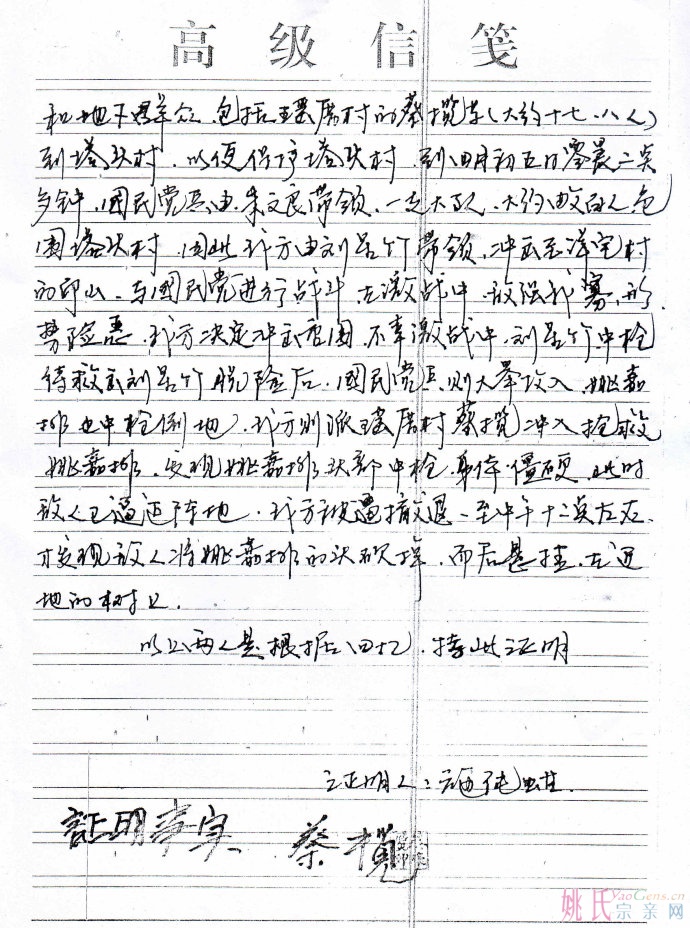 高级信笺
和地下军群众，包括瑶厝村的蔡揽等(大约十七.八人)
到塔头村，以便保护塔头村，到四月初五日零晨二点
多钟，国民党兵由朱文良带领，一支大队，大约数百人包
围塔头村，因此我方由刘 带领，冲出至 宅村
的印山，与国民党进行战斗，在激战中，敌强我寡，形
势险恶，我方决定冲出重围，不幸激战中，刘 中枪
待救出刘 脱险后，国民党兵则大举攻入，姚嘉
排也中枪倒地，我方则派瑶厝村蔡揽冲入抢救
姚嘉排，发现姚嘉排头部中枪，身体僵硬，此时
敌人已逼近阵地，我方被逼撤退，至中午十二点左右，
才发现敌人将姚嘉排的头砍掉，而后悬挂在近
地的树上.
以上两人是根据回忆，特此证明
证明人:施纯
証明事实 蔡揽
姚氏宗亲网
YaoGens.cn